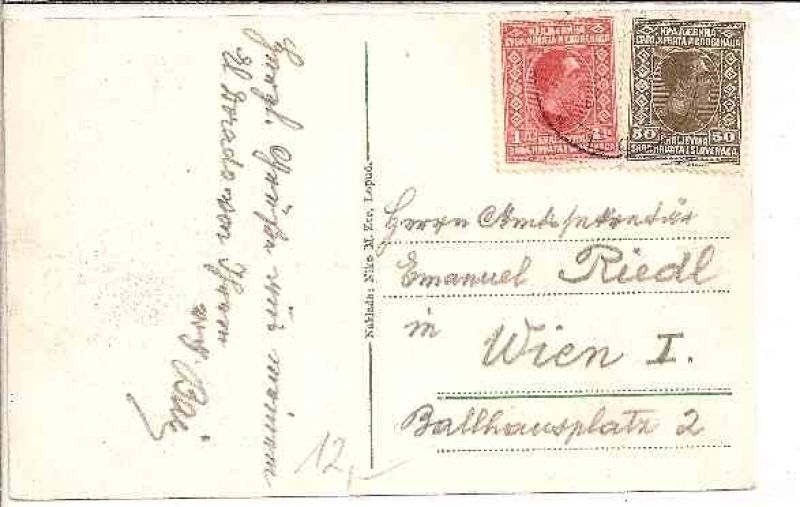 Herzl. Grüße aus meinem
El Dorado von Ihrem
КРАЉЕВИНА
СРБА ХРВАТА И СЛОВЕНАЦА
1
KRALJEVINA
SRBA HRVATA I SLOVENACA
КРАЉЕВИНА
СРБА ХРВАТА И СЛОВЕНАЦА
50 50
KRALJEVINA
SRBA HRVATA I SLOVENACA
Naklada: Niko M. Zec, Lopud.
Herrn Amtssekretär
Emanuel Riedl
in
Wien I.
Ballhausplatz 2
12,-